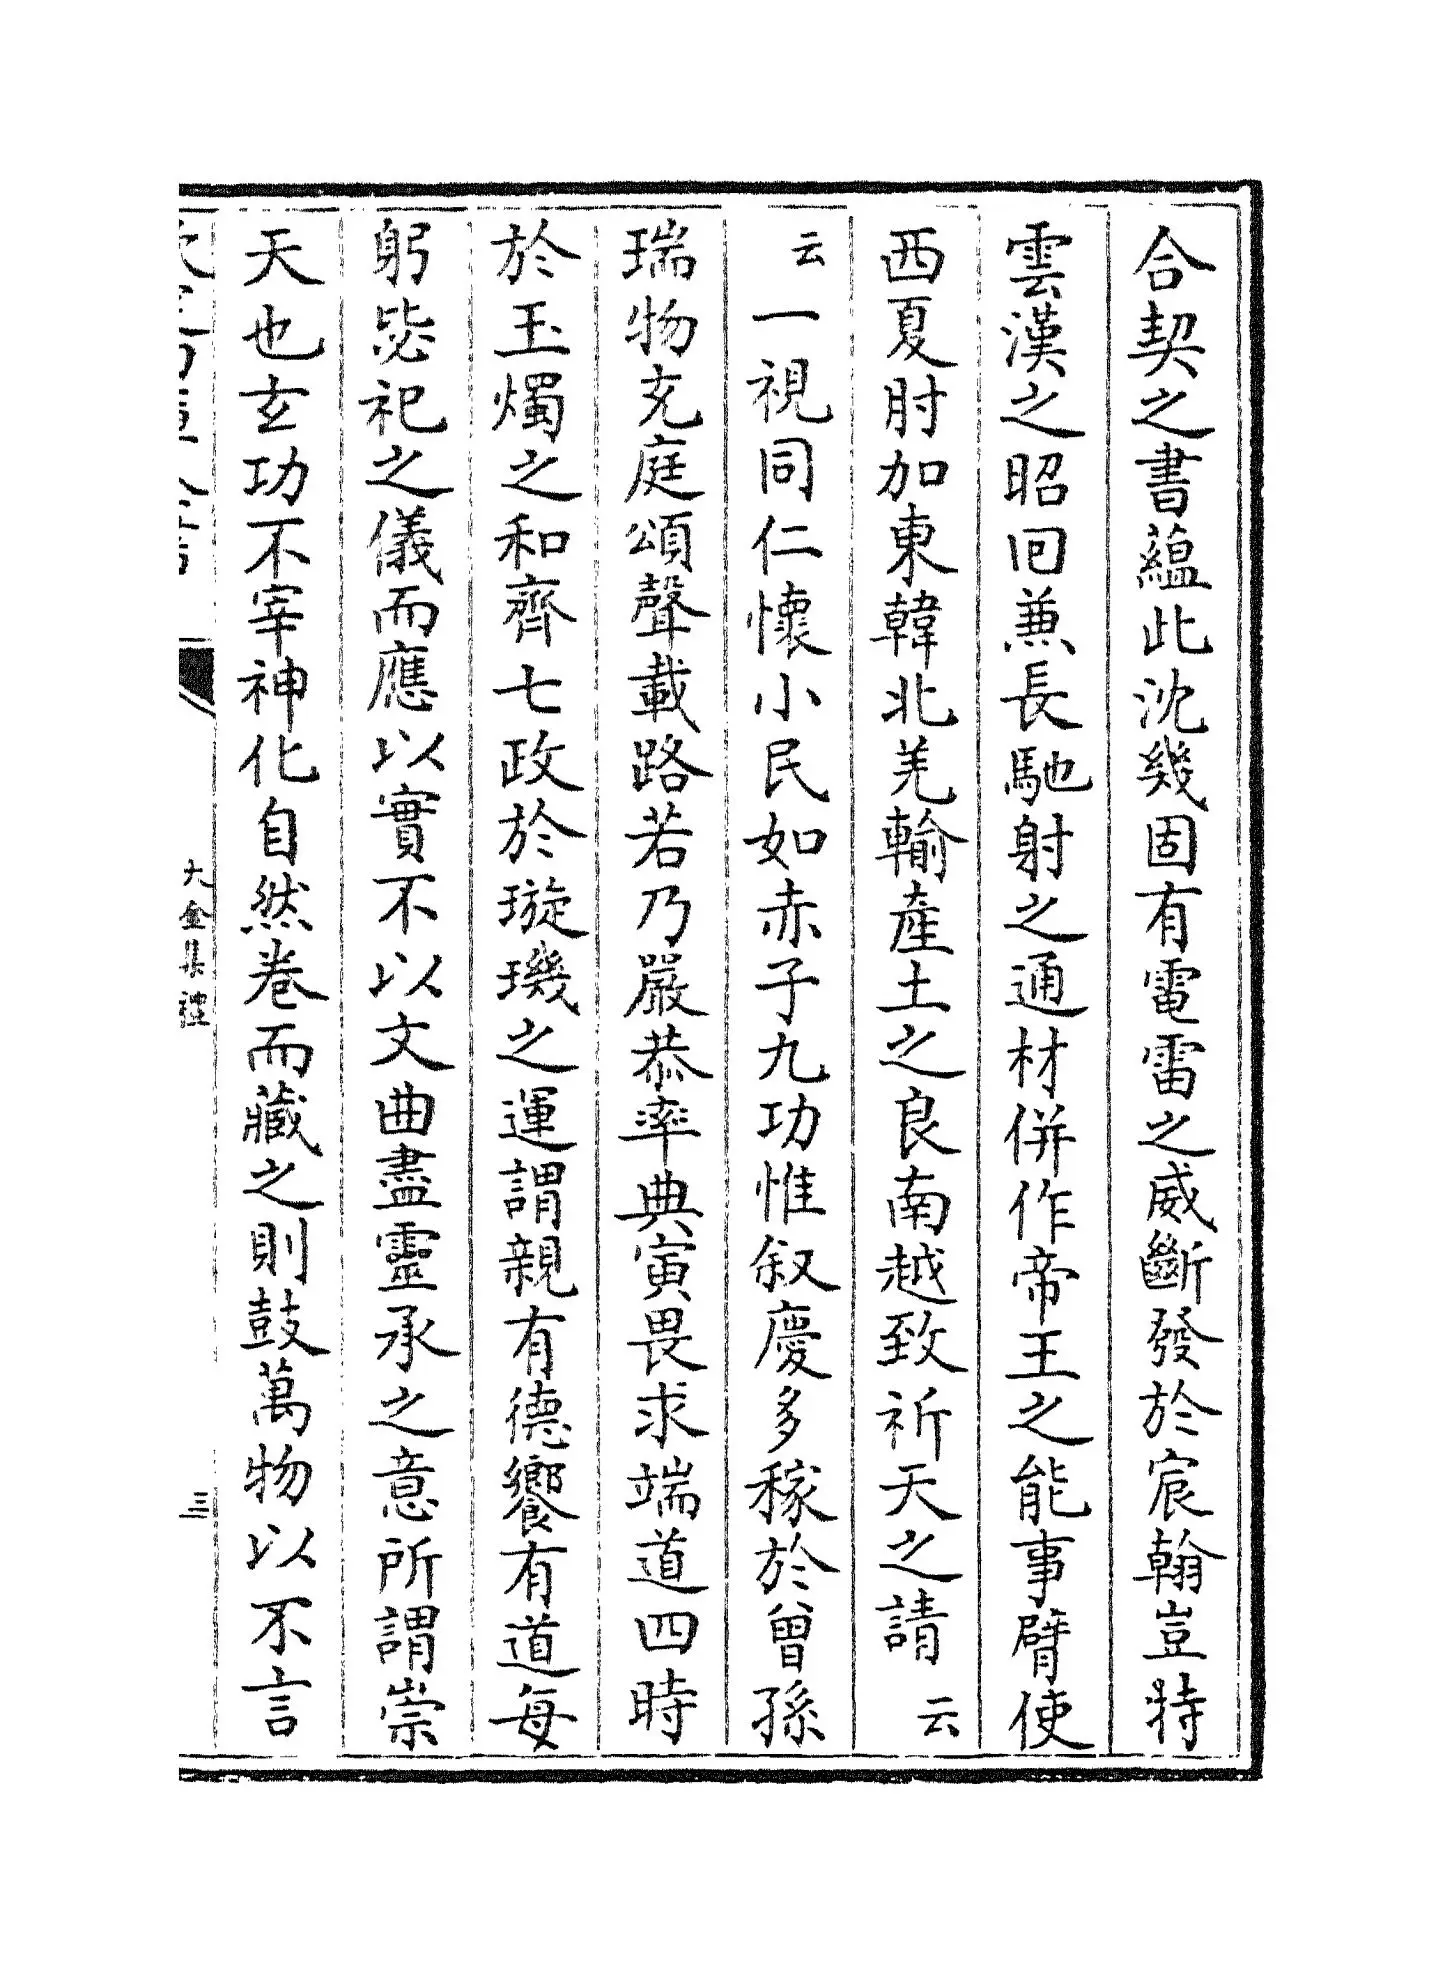 合契之書蘊此沈幾固有電雷之威斷發於宸翰豈特
雲漢之昭回兼長馳射之通材併作帝王之能事臂使
西夏肘加東韓北羌輸產土之良南越致祈天之請云
云一視同仁懷小民如赤子九功惟叙慶多稼於曾孫
瑞物充庭頌聲載路若乃嚴恭率典寅畏求端道四時
於玉燭之和齊七政於璇璣之運謂親有德饗有道每
躬毖祀之儀而應以實不以文曲盡靈承之意所謂崇
天也玄功不宰神化自然卷而藏之則鼓萬物以不言
大金集禮
三